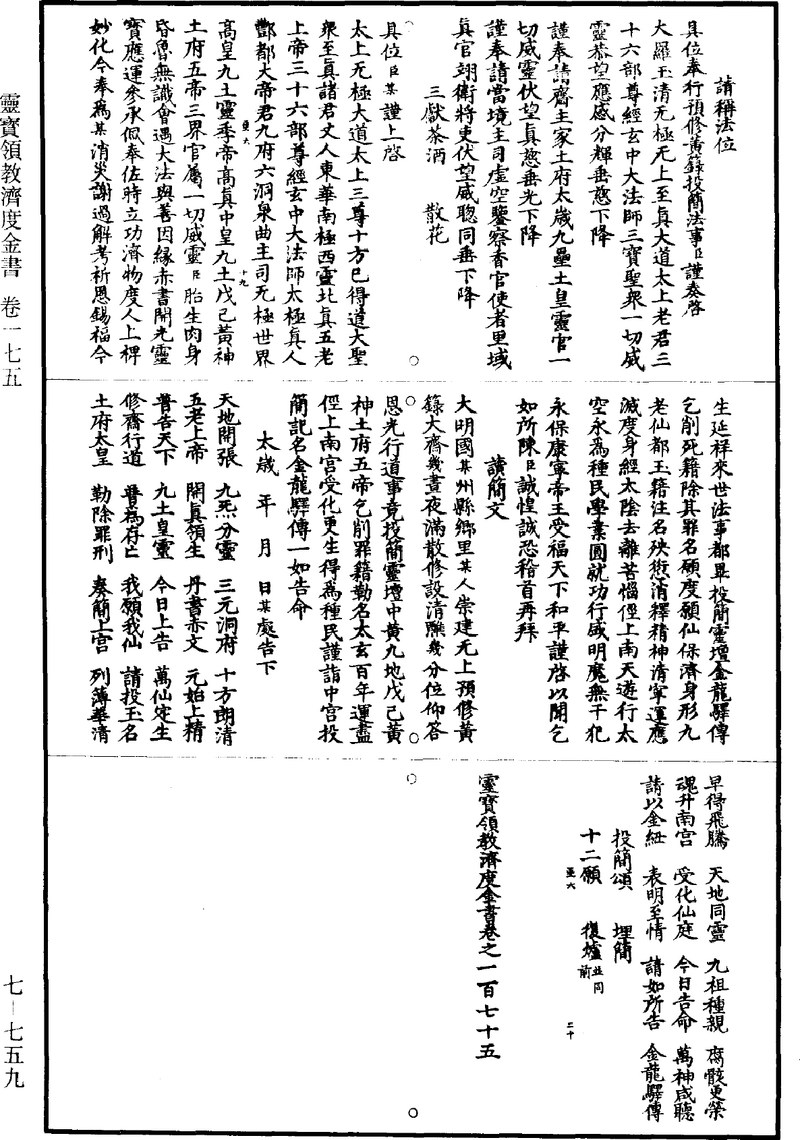 靈寶領教濟度金書 卷一七五
七—七五九
請稱法位
具位奉行預修黃籙投簡法事臣謹奏啓
大羅玉清无極无上至真大道太上老君三
十六部尊經玄中大法師三寶聖衆一切威
靈恭望應感分輝垂慈下降
謹奉請齋主家土府太歲九壘土皇靈官一
切威靈伏望真慈垂光下降
謹奉請當境主司虛空鑒察香官使者里域
真官翊衛將吏伏望威聰同垂下降
三獻茶酒 散花
具位臣某謹上啓
太上无極大道太上三尊十方已得道大聖
衆至真諸君丈人東華南極西靈北真五老
上帝三十六部尊經玄中大法師太極真人
酆都大帝君九府六洞泉曲主司无極世界
亟六
十九
高皇九土靈季帝高真中皇九土戊己黃神
土府五帝三界官屬一切威靈臣胎生肉身
昏魯無識會遇大法與善因緣赤書開光靈
寶應運參承佩奉佐時立功濟物度人上裨
妙化今奉爲某消災謝過解考祈恩錫福今
生延祥來世法事都畢投簡靈壇金龍驛傳
乞削死籍除其罪名願度願仙保濟身形九
老仙都玉籍注名殃愆清釋精神清寧運應
滅度身經太陰去離苦惱徑上南天遊行太
空永爲種民學業圓就功行咸明魔無干犯
永保康寧帝王受福天下和平謹啓以聞乞
如所陳臣誠惶誠恐稽首再拜
讀簡文
大明國某州縣鄉里某人崇建无上預修黃
籙大齋幾晝夜滿散修設清醮幾分位仰答
恩光行道事竟投簡靈壇中黃九地戊己黃
神土府五帝乞削罪籍勒名太玄百年運盡
徑上南宮受化更生得爲種民謹詣中宮投
簡記名金龍驛傳一如告命
太歲 年 月 日某處告下
天地開張 九炁分靈 三元洞府 十方朗清
五老上帝 開真領生 丹書赤文 元始上精
普告天下 九土皇靈 今日上告 萬仙定生
修齋行道 普爲存亡 我願我仙 請投玉名
土府太皇 勒除罪刑 奏簡上宮 列薄華清
早得飛騰 天地同靈 九祖種親 腐骸更榮
魂升南宮 受化仙庭 今日告命 萬神咸聽
請以金紐 表明至情 請如所告 金龍驛傳
投簡頌 埋簡
十二願 復爐並同前
亟六
二十
靈寶領教濟度金書卷之一百七十五